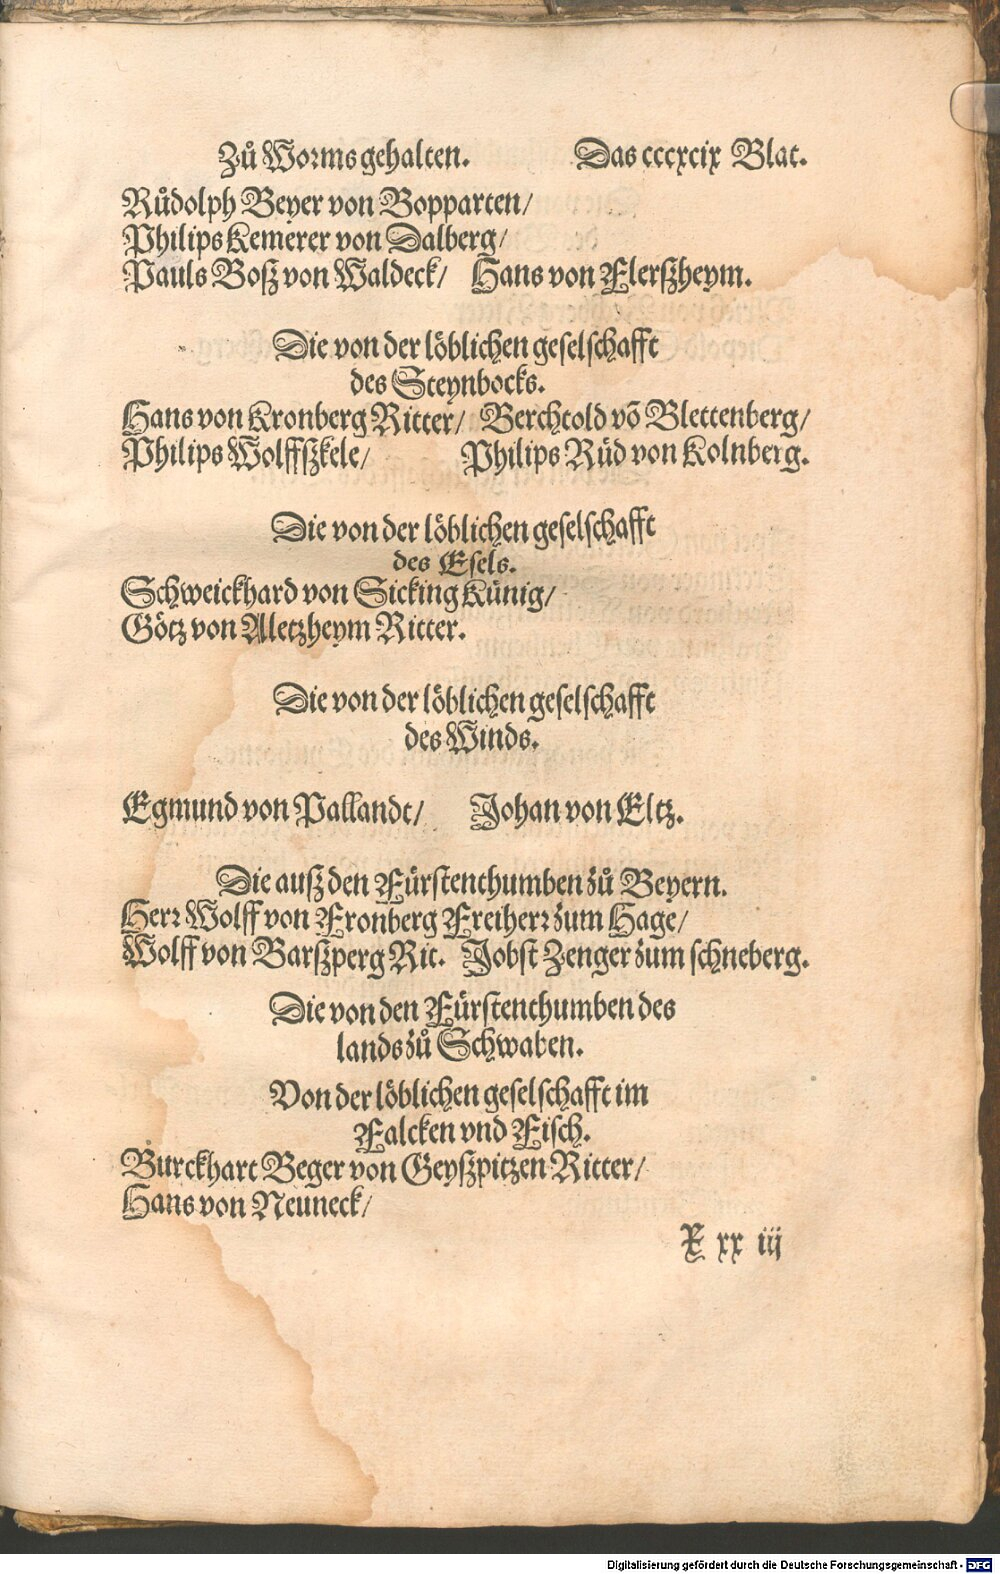 Zů Worms gehalten. Das cccxcix Blat.
Růdolph Beyer von Bopparten/
Philips Kemerer von Dalberg/
Pauls Boſz von Waldeck/ Hans von Flerſzheym.
Die von der löblichen geſelſchafft
des Steynbocks.
Hans von Kronberg Ritter/ Berchtold võ Blettenberg/
Philips Wolffſzkele/ Philips Rüd von Kolnberg.
Die von der löblichen geſelſchafft
des Eſels.
Schweickhard von Sicking Künig/
Götz von Aletzheym Ritter.
Die von der löblichen geſelſchafft
des Winds.
Egmund von Pallandt/ Johan von Eltz.
Die auſz den Fürſtenthumben zů Beyern.
Herr Wolff von Fronberg Freiherr zum Hage/
Wolff von Barſzperg Rit. Jobſt Zenger zum ſchneberg.
Die von den Fürſtenthumben des
lands zů Schwaben.
Von der löblichen geſelſchafft im
Falcken vnd Fiſch.
Burckhart Beger von Geyſzpitzen Ritter/
Hans von Neuneck/
X xx iij
Digitalisierung gefördert durch die Deutsche Forschungsgemeinschaft - DFG